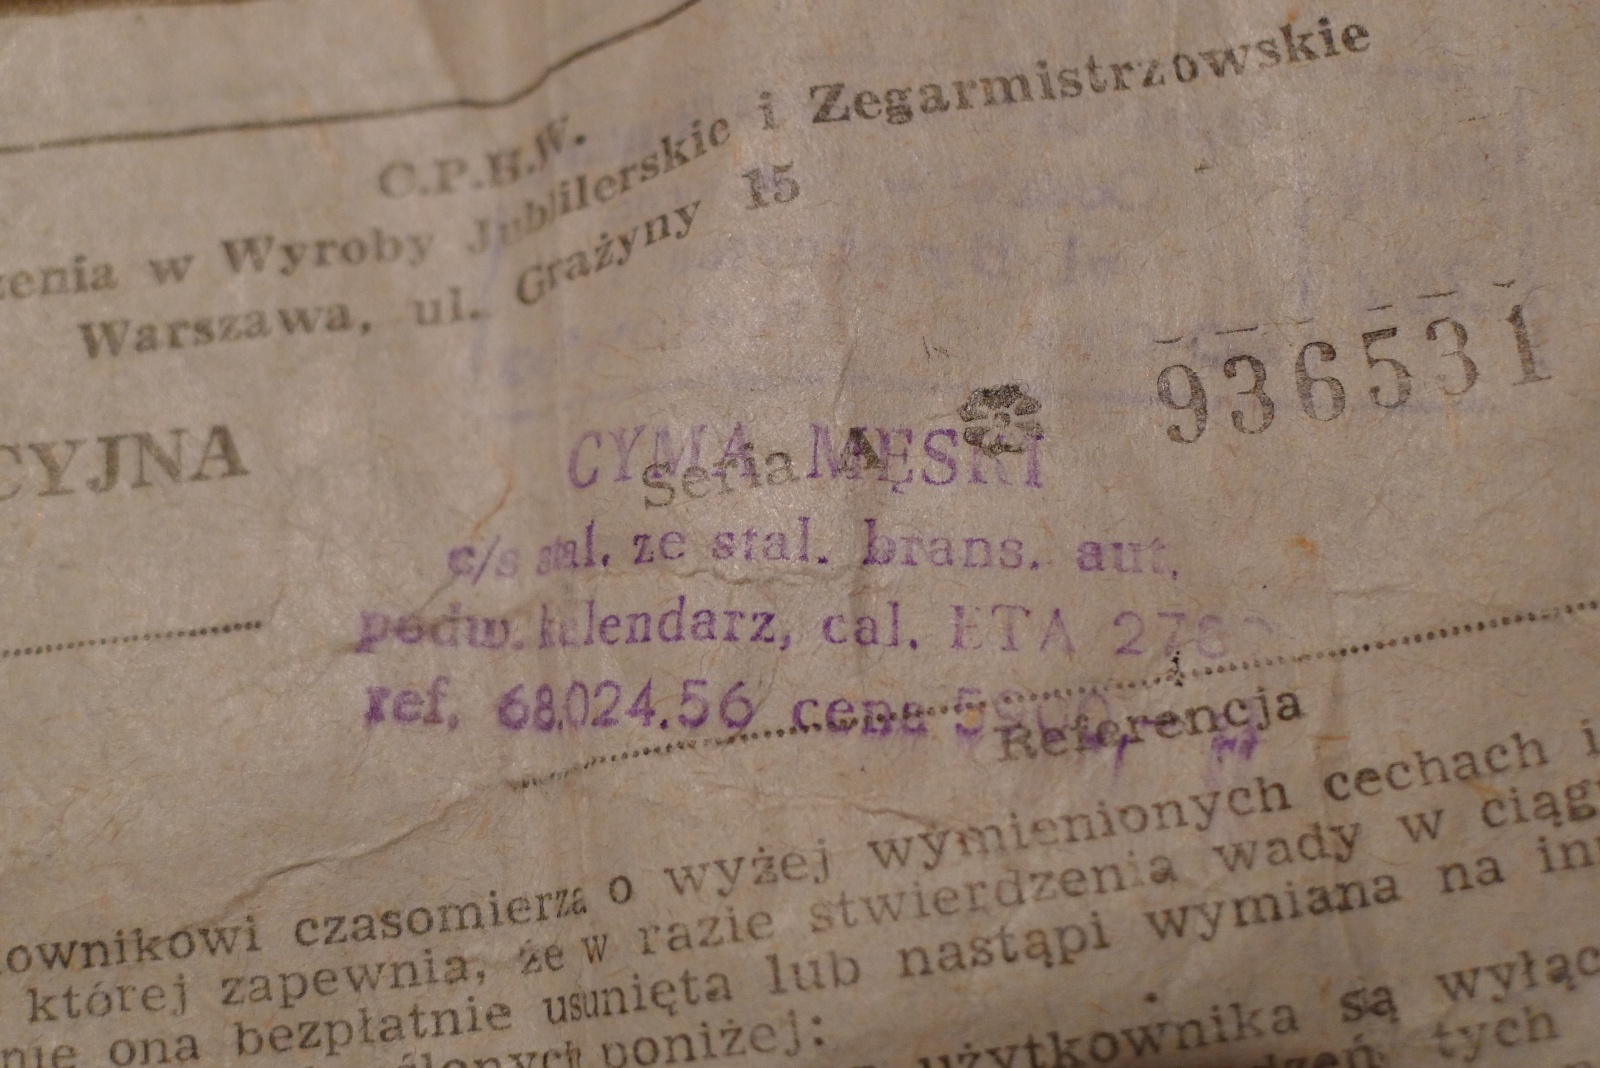 C.P.H.W.
zenia w Wyroby Jubilerskie i Zegarmistrzowskie
Warszawa, ul. Grażyny 15
936531
CYJNA
Seria A
CYMA MĘSKI
c/s stal. ze stal. brans. aut.
podw. kalendarz, cal. ETA
ref. 68.024.56 cena
Referencja
ownikowi czasomierza o wyżej wymienionych cechach i
której zapewnia, że w razie stwierdzenia wady w ciągu
nie ona bezpłatnie usunięta lub nastąpi wymiana na
poniżej:
użytkownika są
tych